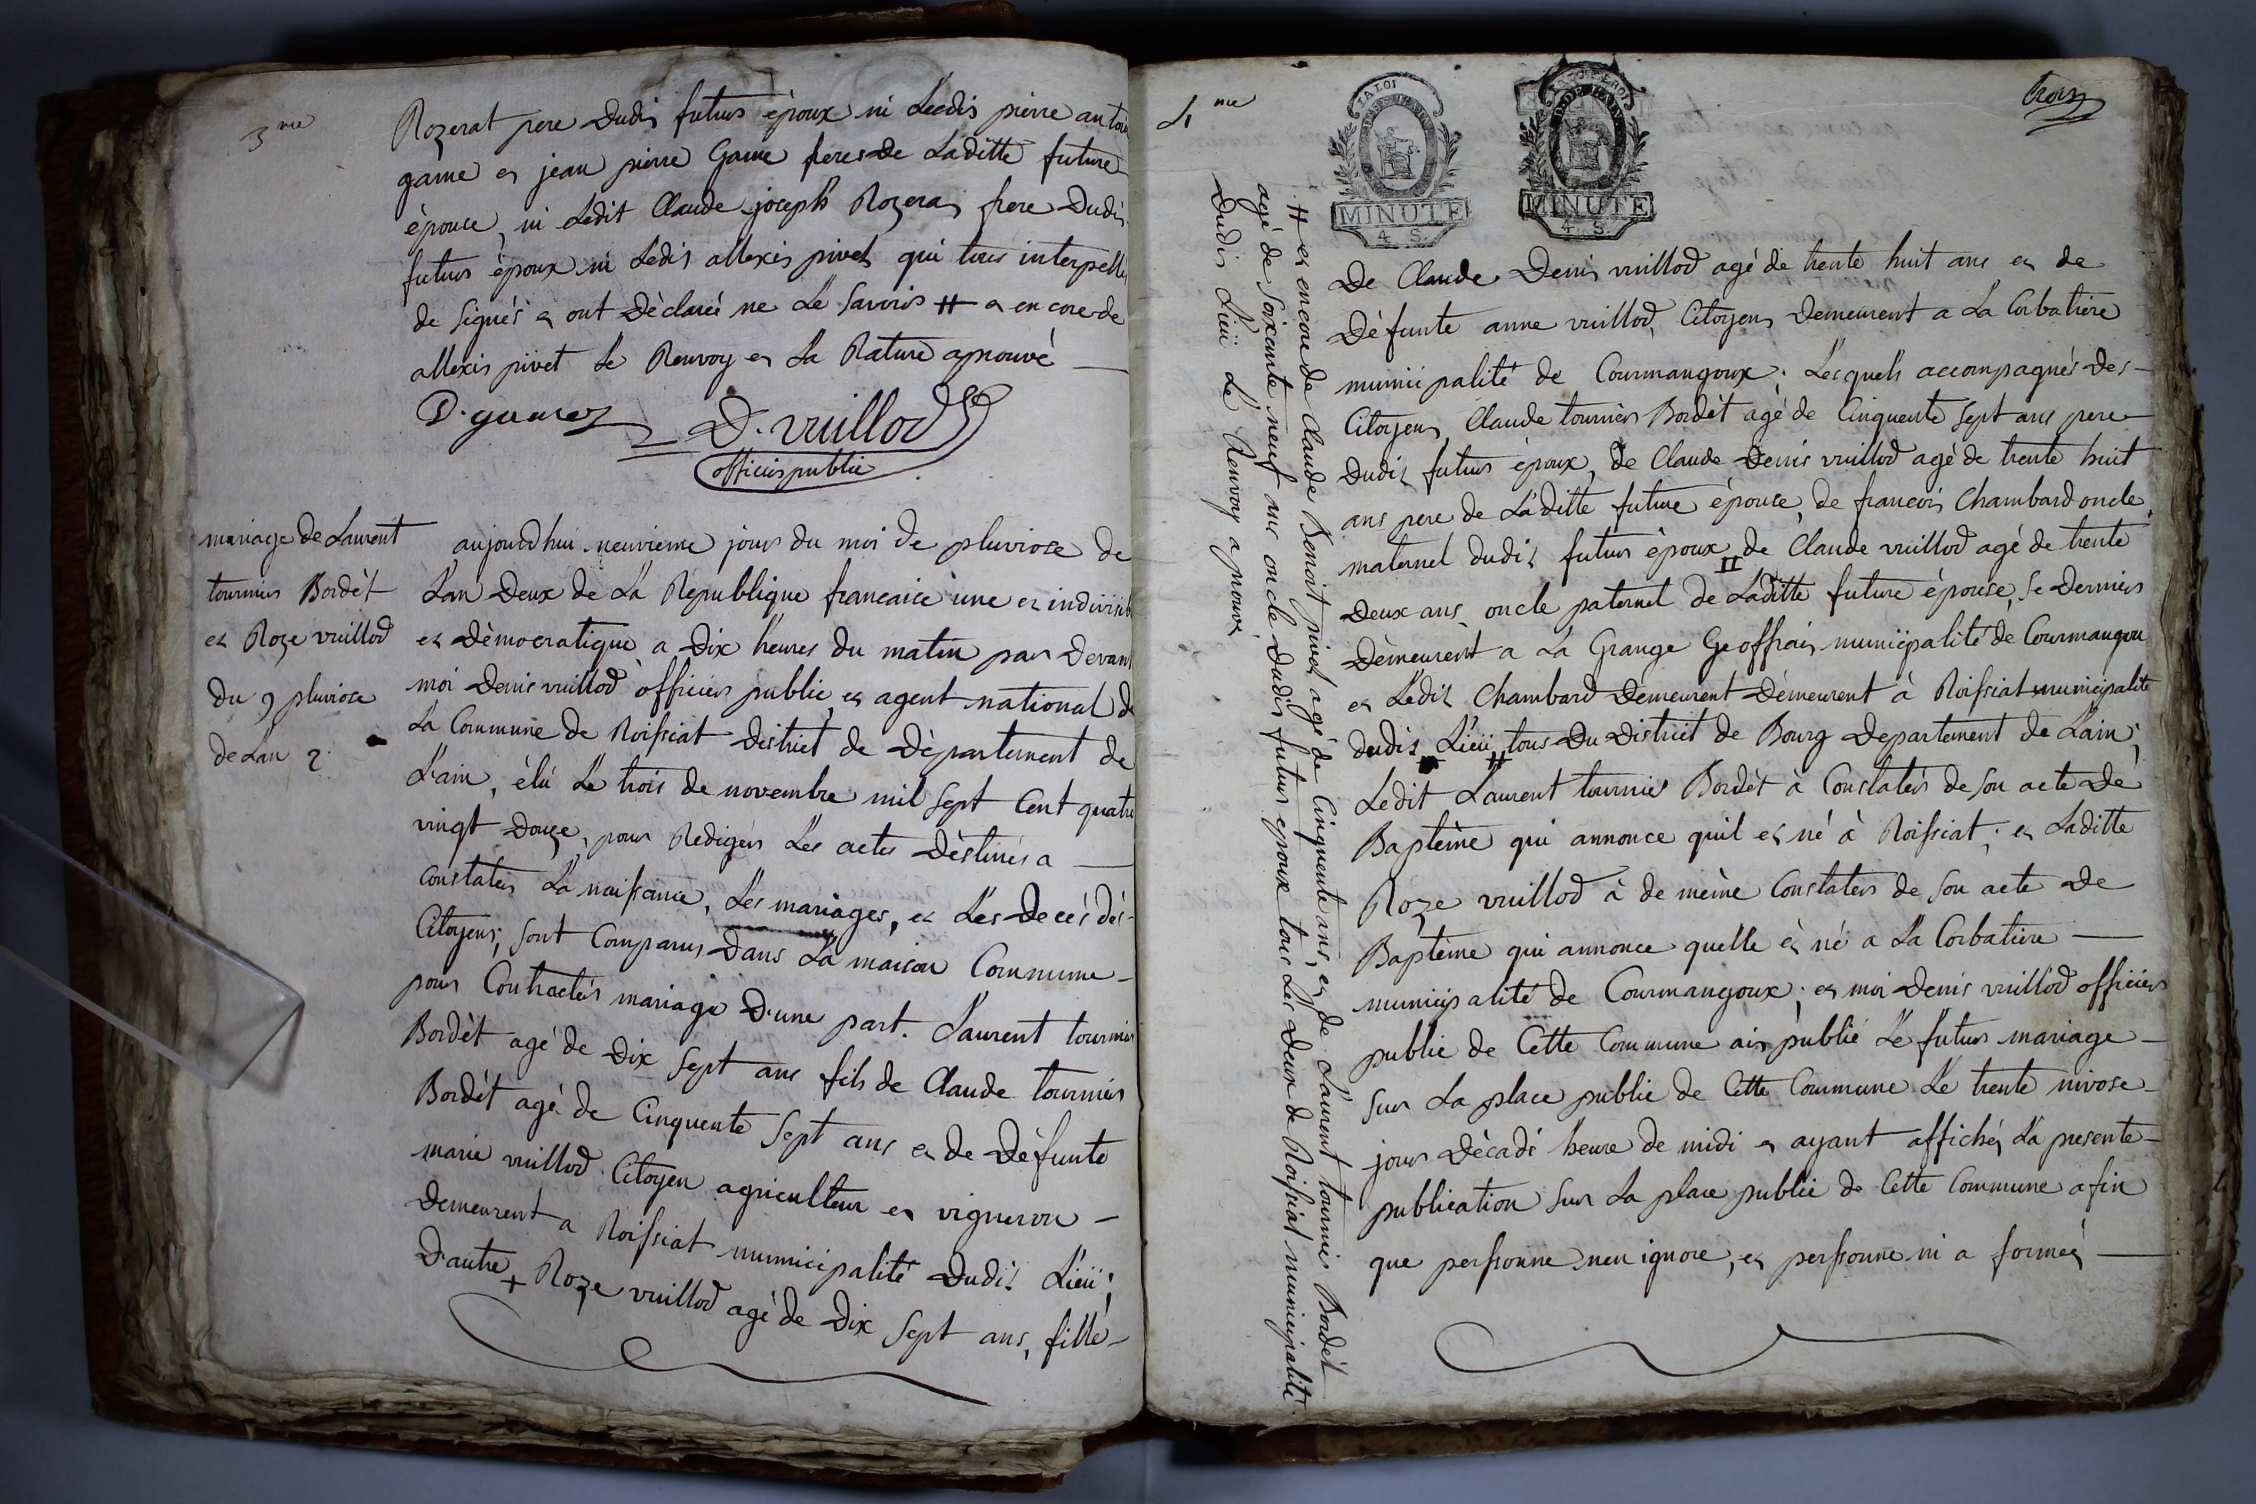 3me
Rozerat pere Dudit futurs époux ni Lesdis pierre antoi
game et jean pierre Game freres de Laditte future
épouce, ni Ledit Claude joseph Rozerat frere Dudit
futurs époux ni Ledit allexis pivet qui tous interpellé
de signés et ont Déclaréi ne Le savoirs # et encore de
allexis pivet Le Renvoy et La Rature aprouvé
D. vuillod
officiers public
mariage de Laurent
tourniers Bordèt
et Roze vuillod
du 9 pluviose
de Lan 2.
aujourdhui neuvieme jours du moi de pluviose de
L'an Deux de La Republique francaice une et indivisib
et Démocratique a Dix heures du matin par Devant
moi Denis vuillod officiers public et agent national de
La Commune de Roissiat District de Département de
L'ain, élu Le trois de novembre mil sept Cent quatre
vingt Douze, pours Redigérs Les actes Déstinés a
Constatérs La naissance, Les mariages, et Les Decés dés
Citoyens; sont Comparus Dans La maison Commune
pours Contractérs mariage D'une part. Laurent tournier
Bordèt agé de Dix sept ans fils de Claude tourniers
Bordèt agé de Cinquente sept ans et de Défunte
marie vuillod Citoyen agriculteur et vigneron
Demeurent a Roissiat municipalité Dudit Lieü;
D'autre + Roze vuillod agé de Dix sept ans, fille
4me
trois
LA LOI
MINUTE
4. S.
MINUTE
4. S.
De Claude Denis vuillod agé de trente huit ans et de
Défunte anne vuillod, Citoyens Demeurent a La Corbatiere
municipalité de Courmangoux; Lesquels accompagnés des
Citoyens Claude tourniers Bordèt agé de Cinquente sept ans pere
Dudit futurs époux, de Claude Denis vuillod agé de trente huit
ans pere de Laditte future épouce, de francois Chambard oncle
maternel dudit futurs époux de Claude vuillod agé de trente
Deux ans, oncle paternel de Laditte future épouse, se Derniers
Démeurent a La Grange Geoffrais municipalité de Courmangou
et Ledit Chambard Demeurent Démeurent à Roissiat municipalité
dudit Lieü # tous Du District de Bourg Departement de L'ain;
Ledit Laurent tournier Bordèt à Constatérs de son acte De
Baptéme qui annonce quil et né à Roissiat; et Laditte
Roze vuillod à de méme Constaters de son acte De
Baptéme qui annonce quelle et né a La Corbatiere
municipalité de Courmangoux; et moi Denis vuillod officiers
public de Cette Commune ais publié Le futurs mariage
sur La place public de Cette Commune Le trente nivose
jours Décadé heure de midi et ayant affiché, La presente
publication sur La place public de Cette Commune afin
que perssonne nen ignore, et perssonne ni a formeé
# et encore de Claude Benoit pivet agé de Cinquente ans, et de Laurent tournier Bordèt
agé de soixante neuf ans oncle Dudit futurs époux tous Les Deux de Roissiat municipalité
Dudit Lieü Le Renvoy aprouvé